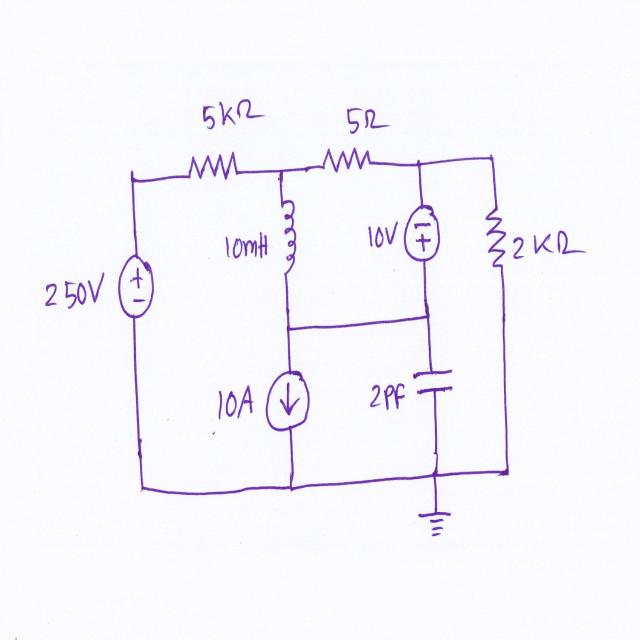 5KΩ
5Ω
10mH
10V
2KΩ
250V
10A
2PF